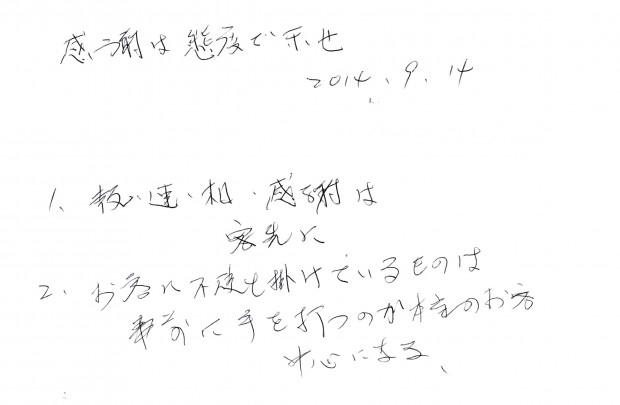 感謝は態度で示せ
2014.9.14
1、報・連・相・感謝は
客先に
2、お客に不便を掛けているものは
事前に手を打つのが本当のお客
中心になる、